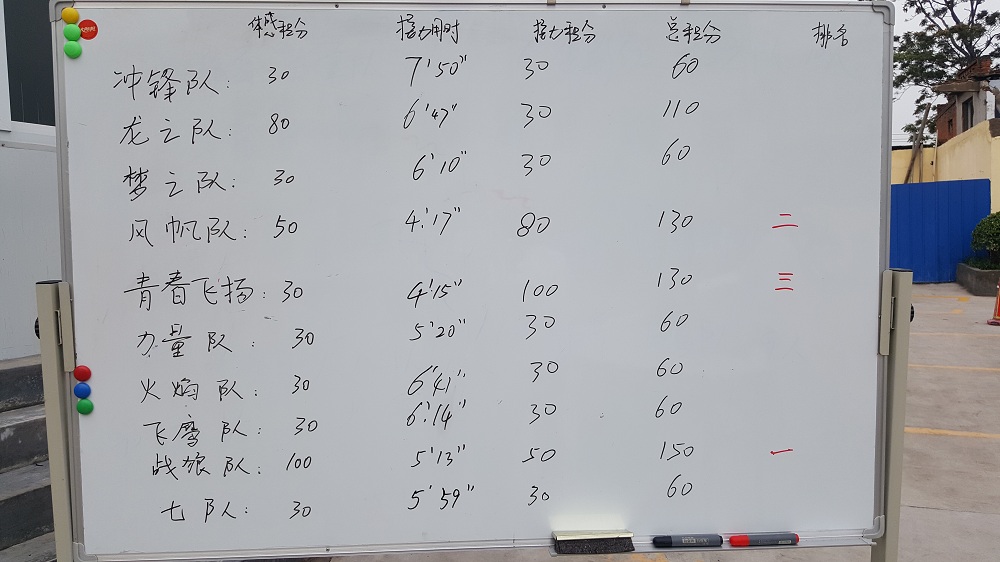 体感积分 接力用时 接力积分 总积分 排名
冲锋队: 30 7'50" 30 60
龙之队: 80 6'47" 30 110
梦之队: 30 6'10" 30 60
风帆队: 50 4'17" 80 130 二
青春飞扬: 30 4'15" 100 130 三
力量队: 30 5'20" 30 60
火焰队: 30 6'41" 30 60
飞鹰队: 30 6'14" 30 60
战狼队: 100 5'13" 50 150 一
七队: 30 5'59" 30 60